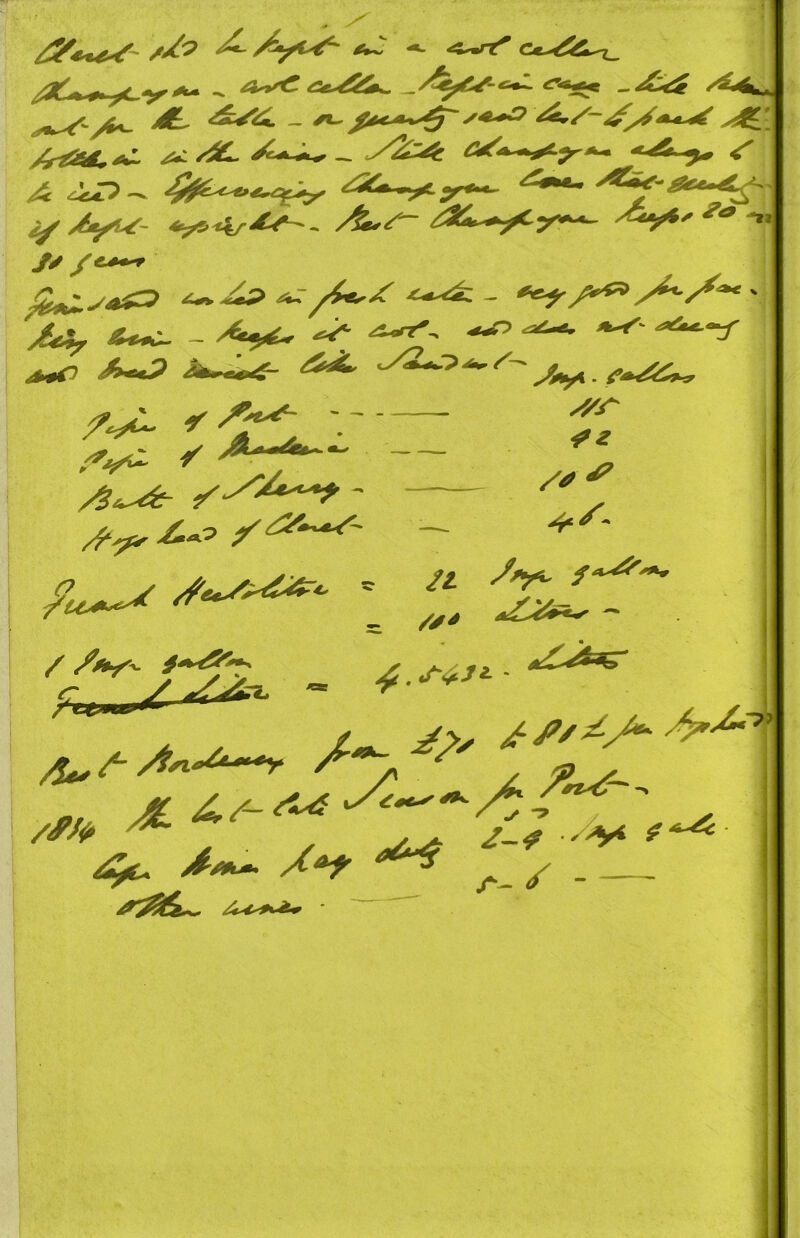 Claret shd be kept in a cool cellar
Champagne - cool cellar - kept in case - till taken
out for the table - or quartz sand best to pack the
bottles in in the binns - Still Champagne always to
be iced - Effervescing Champagne loses that quality
if kept upright. Best Champagne keeps 20 or
30 years
Fine sand washed in fresh water - very good for pac-
king wine - keeps it cool - and does not decay
and breed insects like Sawdust -
Imp. gallons
Pipe of Port - - - - — 115
Pipe of Madeira - — 92
Butt of Sherry - — 108
Hogshead of Claret - — 46.
French Hectolitre = 22 Imp gallons
= 100 Litres -
1 Imp gallon
French Litre = 4.5432. Litres
Best Bordeaux from £70 to 80£ per Hogshead
1834 the best late Season for Port -
Cape Wines pay duty 2-9 Imp gall.
other wines — 5-6 - —